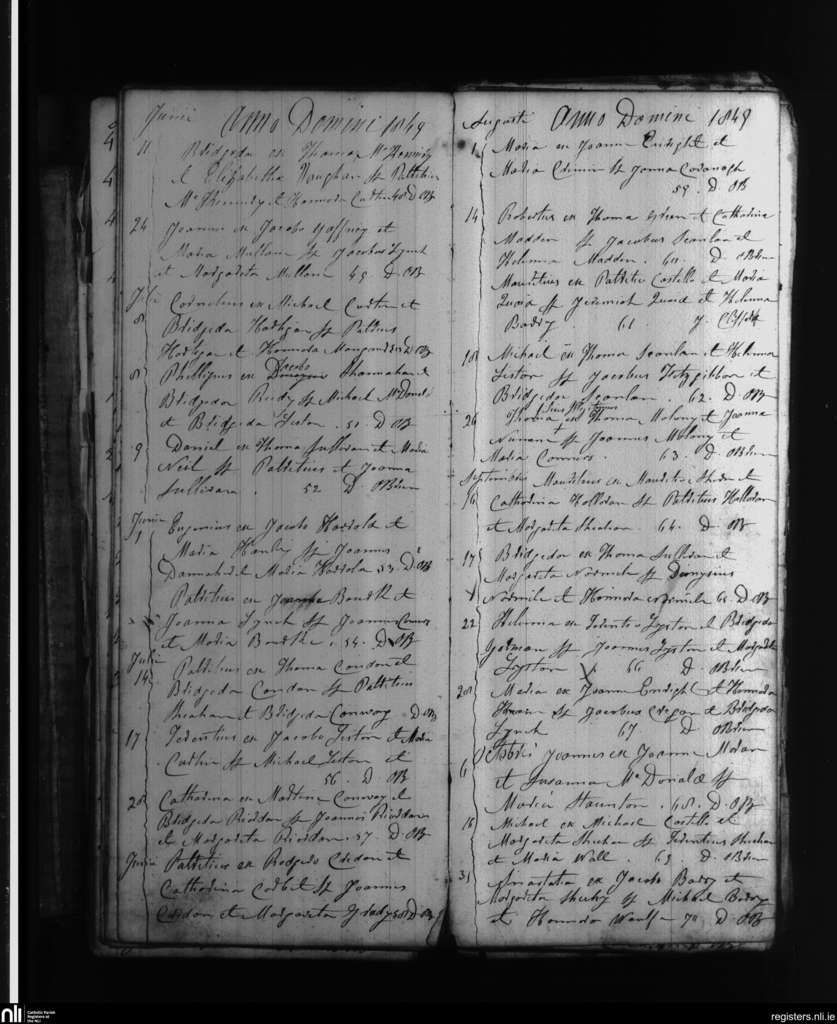 Junii Anno Domini 1849
11 Bridgeda ex Thoma McKennedy
et Elizabetha Vaughan Sp Patritius
McKennedy et Honnora Curtin 48 D OB
24 Joannes ex Jacobo Gaffney et
Maria Mullane Sp Jacobus Lynch
et Margarita Mullane 49 D OB
Julii Cornelius ex Michael Curtin et
8 Bridgeda Hartigan Sp Patritius
Hartigan et Honnora Mangan D OB
8 Phillipus ex Jacobo Shannahan et
Bridgeda Reidy Sp Michael McDonell
et Bridgeda Liston . 51 . D OB
9 Daniel ex Thoma Sullivan et Maria
Neil Sp Patritius et Joanna
Sullivan . 52 D OBrien
Junii
1 Eugenius ex Jacobo Harrold et
Maria Hanly Sp Joannes
et Maria Harrold 53 D OB
Patritius ex Bourke et
Joanna Lynch Sp Joannes Connors
et Maria Bourke . 54 . D OB
Julii
14 Patritius ex Thoma Condon et
Bridgeda Condon Sp Patritius
Sheahan et Bridgeda Conway D OB
17 Terentius ex Jacobo Liston et Maria
Curtin Sp Michael Liston et
56 . D OB
28 Catharina ex Martino Conway et
Bridgeda Riordan Sp Joannes Riordan
et Margarita Riordan . 57 . D . OB
Junii Patritius ex Rodgero et
Catharina Corbet Sp Joannes
et Margarita Grady 58 D OB
Augusti Anno Domini 1849
1 Maria ex Joanne Enright et
Maria Sp Joanna Cavanagh
59 . D OB
14 Robertus ex Thoma Green et Catharina
Madden Sp Jacobus Scanlan et
Helenna Madden . 60 . D . OBrien
Mauritius ex Patritio Costello et Maria
Quaid Sp Jeremiah Quaid et Helenna
Barry . 61 . J. Clifford
18 Michael ex Thoma Scanlan et Helenna
Liston Sp Jacobus Fitzgibbon et
Bridgeda Scanlan . 62 . D . OB
26 Thoma ex Thoma Molony et Joanna
Nunan Sp Joannes Molony et
Maria Connors . 63 . D . OBrien
Septembris Mauritius ex Mauritio Sheehan et
16 Catharina Halloran Sp Patritius Halloran
et Margarita Sheehan . 64 . D . OB
17 Bridgeda ex Thoma Sullivan et
Margarita Normile Sp Dionysius
Normile et Honnora Normile 65 D OB
22 Helenna ex Terentio Lyston et Bridgeda
Gorman Sp Joannes Lyston et Margarita
Lyston . 66 D . OBrien
28 Maria ex Joanne Enright et Honnora
Sp Jacobus et Bridgeda
Lynch 67 D OBrien
Octobris Joannes ex Joanne Moran
6 et Susanna McDonald Sp
Maria Staunton . 68 . D . OB
16 Michael ex Michael Costello et
Margarita Sheehan Sp Terentius Sheehan
et Maria Wall . 69 . D . OBrien
31 Anastatia ex Jacobo Barry et
Margarita Sheehy Sp Michael Barry
et Honnora Woulfe 70 D OB
nli
Catholic Parish
Registers at
the NLI
registers.nli.ie